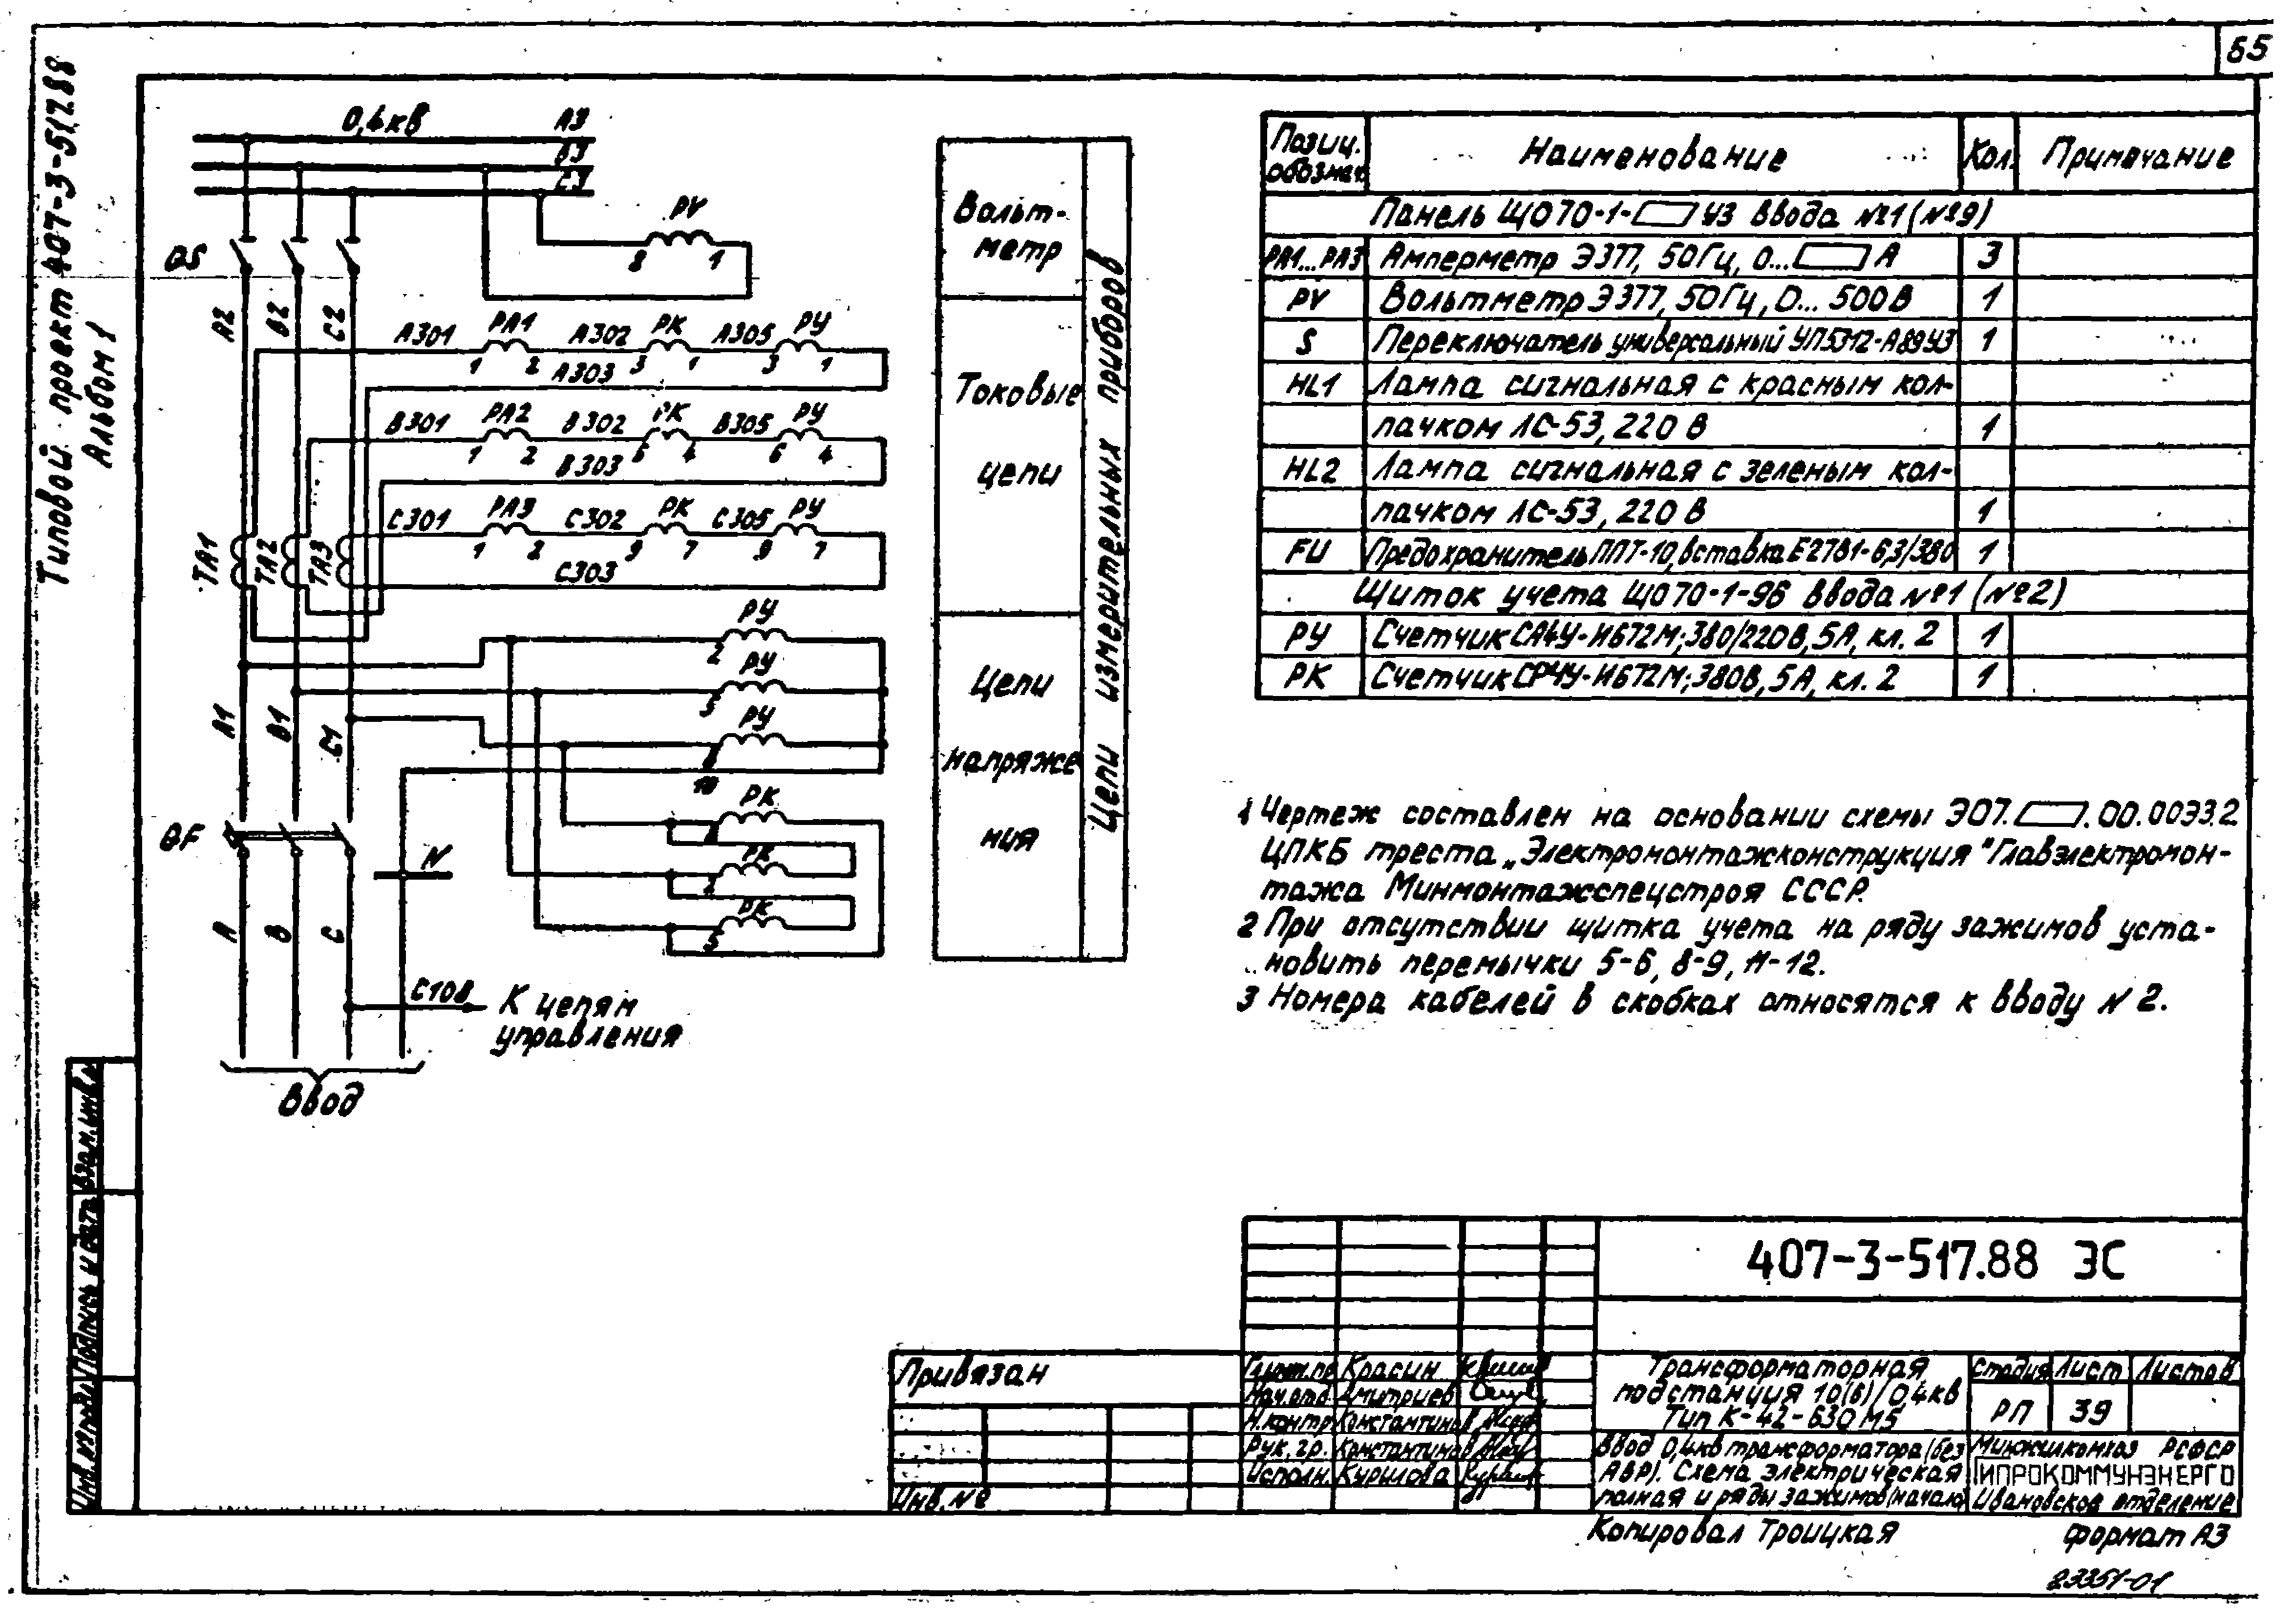 55
Типовой проект 407-3-517.88
Альбом 1
0,4кВ
А3
В3
С3
PV
8 1
QS
А2 В2 С2
А301 РА1 А302 РК А305 РУ
1 2 3 1 3 1
А303
В301 РА2 В302 РК В305 РУ
1 2 6 4 6 4
В303
С301 РА3 С302 РК С305 РУ
1 2 9 7 9 7
С303
ТА1 ТА2 ТА3
РУ
2
РУ
5
РУ
8
10
А1 В1 С1
РК
РК
2
РК
5
QF
N
А В С
С108
К цепям
управления
Ввод
Вольт-
метр
Токовые
цепи
Цепи
напряже
ния
Цепи измерительных приборов
Позиц. обознач. Наименование Кол. Примечание
Панель ЩО70-1- У3 ввода №1 (№9)
РА1...РА3 Амперметр Э377, 50Гц, 0... А 3
PV Вольтметр Э377, 50Гц, 0... 500В 1
S Переключатель универсальный УП5312-А89У3 1
HL1 Лампа сигнальная с красным кол-
пачком ЛС-53, 220 В 1
HL2 Лампа сигнальная с зеленым кол-
пачком ЛС-53, 220 В 1
FU Предохранитель ППТ-10, вставка Е2781-6,3/380 1
Щиток учета ЩО70-1-96 ввода №1 (№2)
РУ Счетчик СА4У-И672М; 380/220В, 5А, кл. 2 1
РК Счетчик СР4У-И672М; 380В, 5А, кл. 2 1
1 Чертеж составлен на основании схемы Э07. .00.00ЭЗ.2
ЦПКБ треста „Электромонтажконструкция" Главэлектромон-
тажа Минмонтажспецстроя СССР.
2 При отсутствии щитка учета на ряду зажимов уста-
новить перемычки 5-6, 8-9, 11-12.
3 Номера кабелей в скобках относятся к вводу N 2.
Инв. № подл. Подпись и дата Взам. инв. №
407-3-517.88 ЭС
Привязан
Инв. №
Гл.инж.пр Красин
Нач.отд Дмитриев
Н.контр Константинов
Рук. гр. Константинов
Исполн. Курилова
Трансформаторная
подстанция 10(6)/0,4кВ
Тип К-42-630 М5
Стадия Лист Листов
РП 39
Ввод 0,4кВ трансформатора (без
АВР). Схема электрическая
полная и ряды зажимов (начало)
Минжилкомхоз РСФСР
ГИПРОКОММУНЭНЕРГО
Ивановское отделение
Копировал Троицкая Формат А3
23351-01